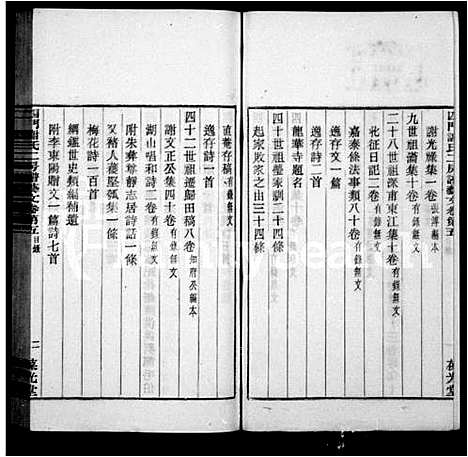 四門謝氏二房譜藝文卷第五
謝光祿集一卷 張溥編本
九世祖瀹集十卷 有錄無文
二十八世祖深甫東江集十卷 有錄無文
北征日記二卷 有錄無文
嘉泰條法事類八十卷 有錄無文
逸存文一篇
逸存詩一首
龍華寺題名
四十世祖瑩家訓二十四條
起家敗家之由三十四條
直菴存稿 有錄無文
逸存詩一首
四十二世祖遷歸田稿八卷
謝文正公集四十卷 有錄無文
湖山唱和詩二卷 有錄無文
附朱彝尊靜志居詩話一條
又豬人穫堅弧集一條
綱鑑世史類編補遺
梅花詩一百首
附李東陽贈文一篇詩七首
四門謝氏二房譜藝文卷第五 目錄
一
葆光堂
葆光堂